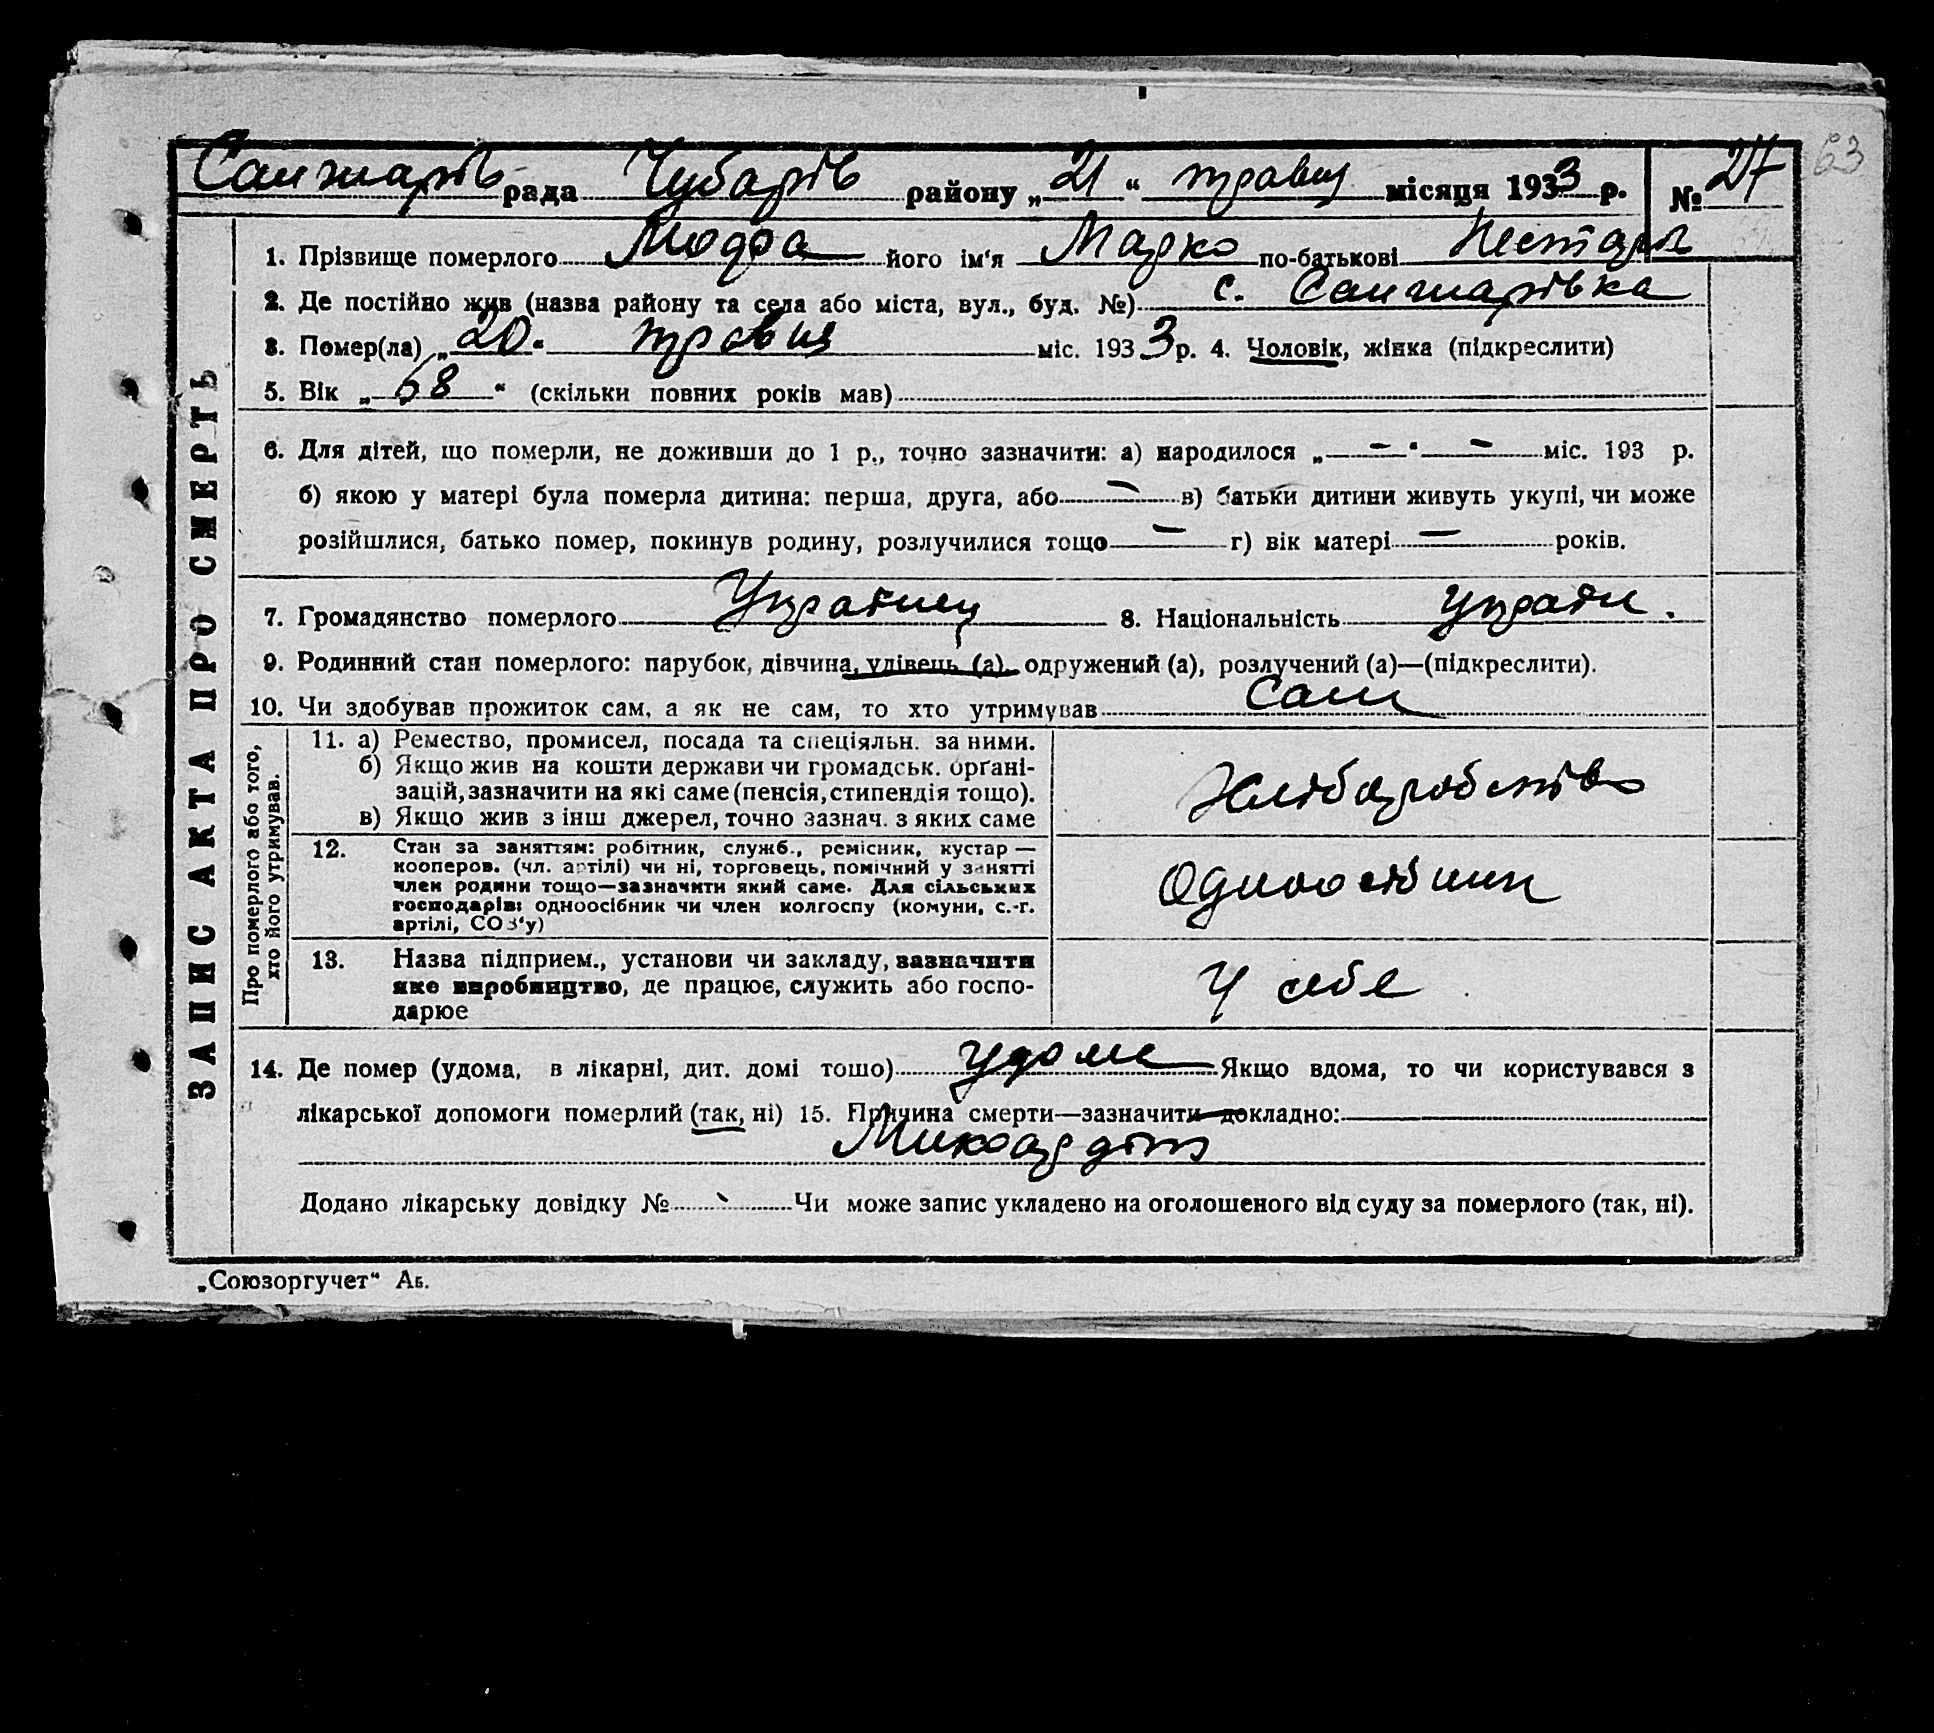 63
Санжарів рада Чубарів району „21“ травня місяця 1933 р. № 27
1. Прізвище померлого Модра його ім'я Марко по-батькові Нестар
2. Де постійно жив (назва району та села або міста, вул., буд. №) с. Санжарівка
3. Помер(ла) „20“ травня міс. 1933 р. 4. Чоловік, жінка (підкреслити)
5. Вік „68“ (скільки повних років мав)
6. Для дітей, що померли, не доживши до 1 р., точно зазначити: а) народилося „—“ — міс. 193 р.
б) якою у матері була померла дитина: перша, друга, або — в) батьки дитини живуть укупі, чи може
розійшлися, батько помер, покинув родину, розлучилися тощо — г) вік матері — років.
7. Громадянство померлого Українец 8. Національність украін.
9. Родинний стан померлого: парубок, дівчина, удівець (а), одружений (а), розлучений (а)—(підкреслити).
10. Чи здобував прожиток сам, а як не сам, то хто утримував Сам
ЗАПИС АКТА ПРО СМЕРТЬ
Про померлого або того,
хто його утримував.
11. а) Ремество, промисел, посада та спеціяльн. за ними.
б) Якщо жив на кошти держави чи громадськ. орґані-
зацій, зазначити на які саме (пенсія, стипендія тощо).
в) Якщо жив з інш джерел, точно зазнач. з яких саме
Хлібаробство
12. Стан за заняттям: робітник, служб., ремісник, кустар —
кооперов. (чл. артілі) чи ні, торговець, помічний у занятті
член родини тощо—зазначити який саме. Для сільських
господарів: одноосібник чи член колгоспу (комуни, с.-г.
артілі, СОЗ'у)
Одноосібник
13. Назва підприем., установи чи закладу, вазначити
яке виробництво, де працює, служить або госпо-
дарює
У себе
14. Де помер (удома, в лікарні, дит. домі тошо) удома Якщо вдома, то чи користувався з
лікарської допомоги померлий (так, ні) 15. Причина смерти—зазначити докладно:
Микоардіт
Додано лікарську довідку № - Чи може запис укладено на оголошеного від суду за померлого (так, ні).
„Союзоргучет“ Аб.